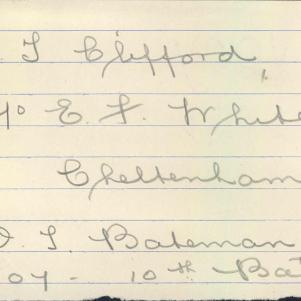 I Clifford
E. F. White
Cheltenham
I. Bateman
07 - 10th Bat